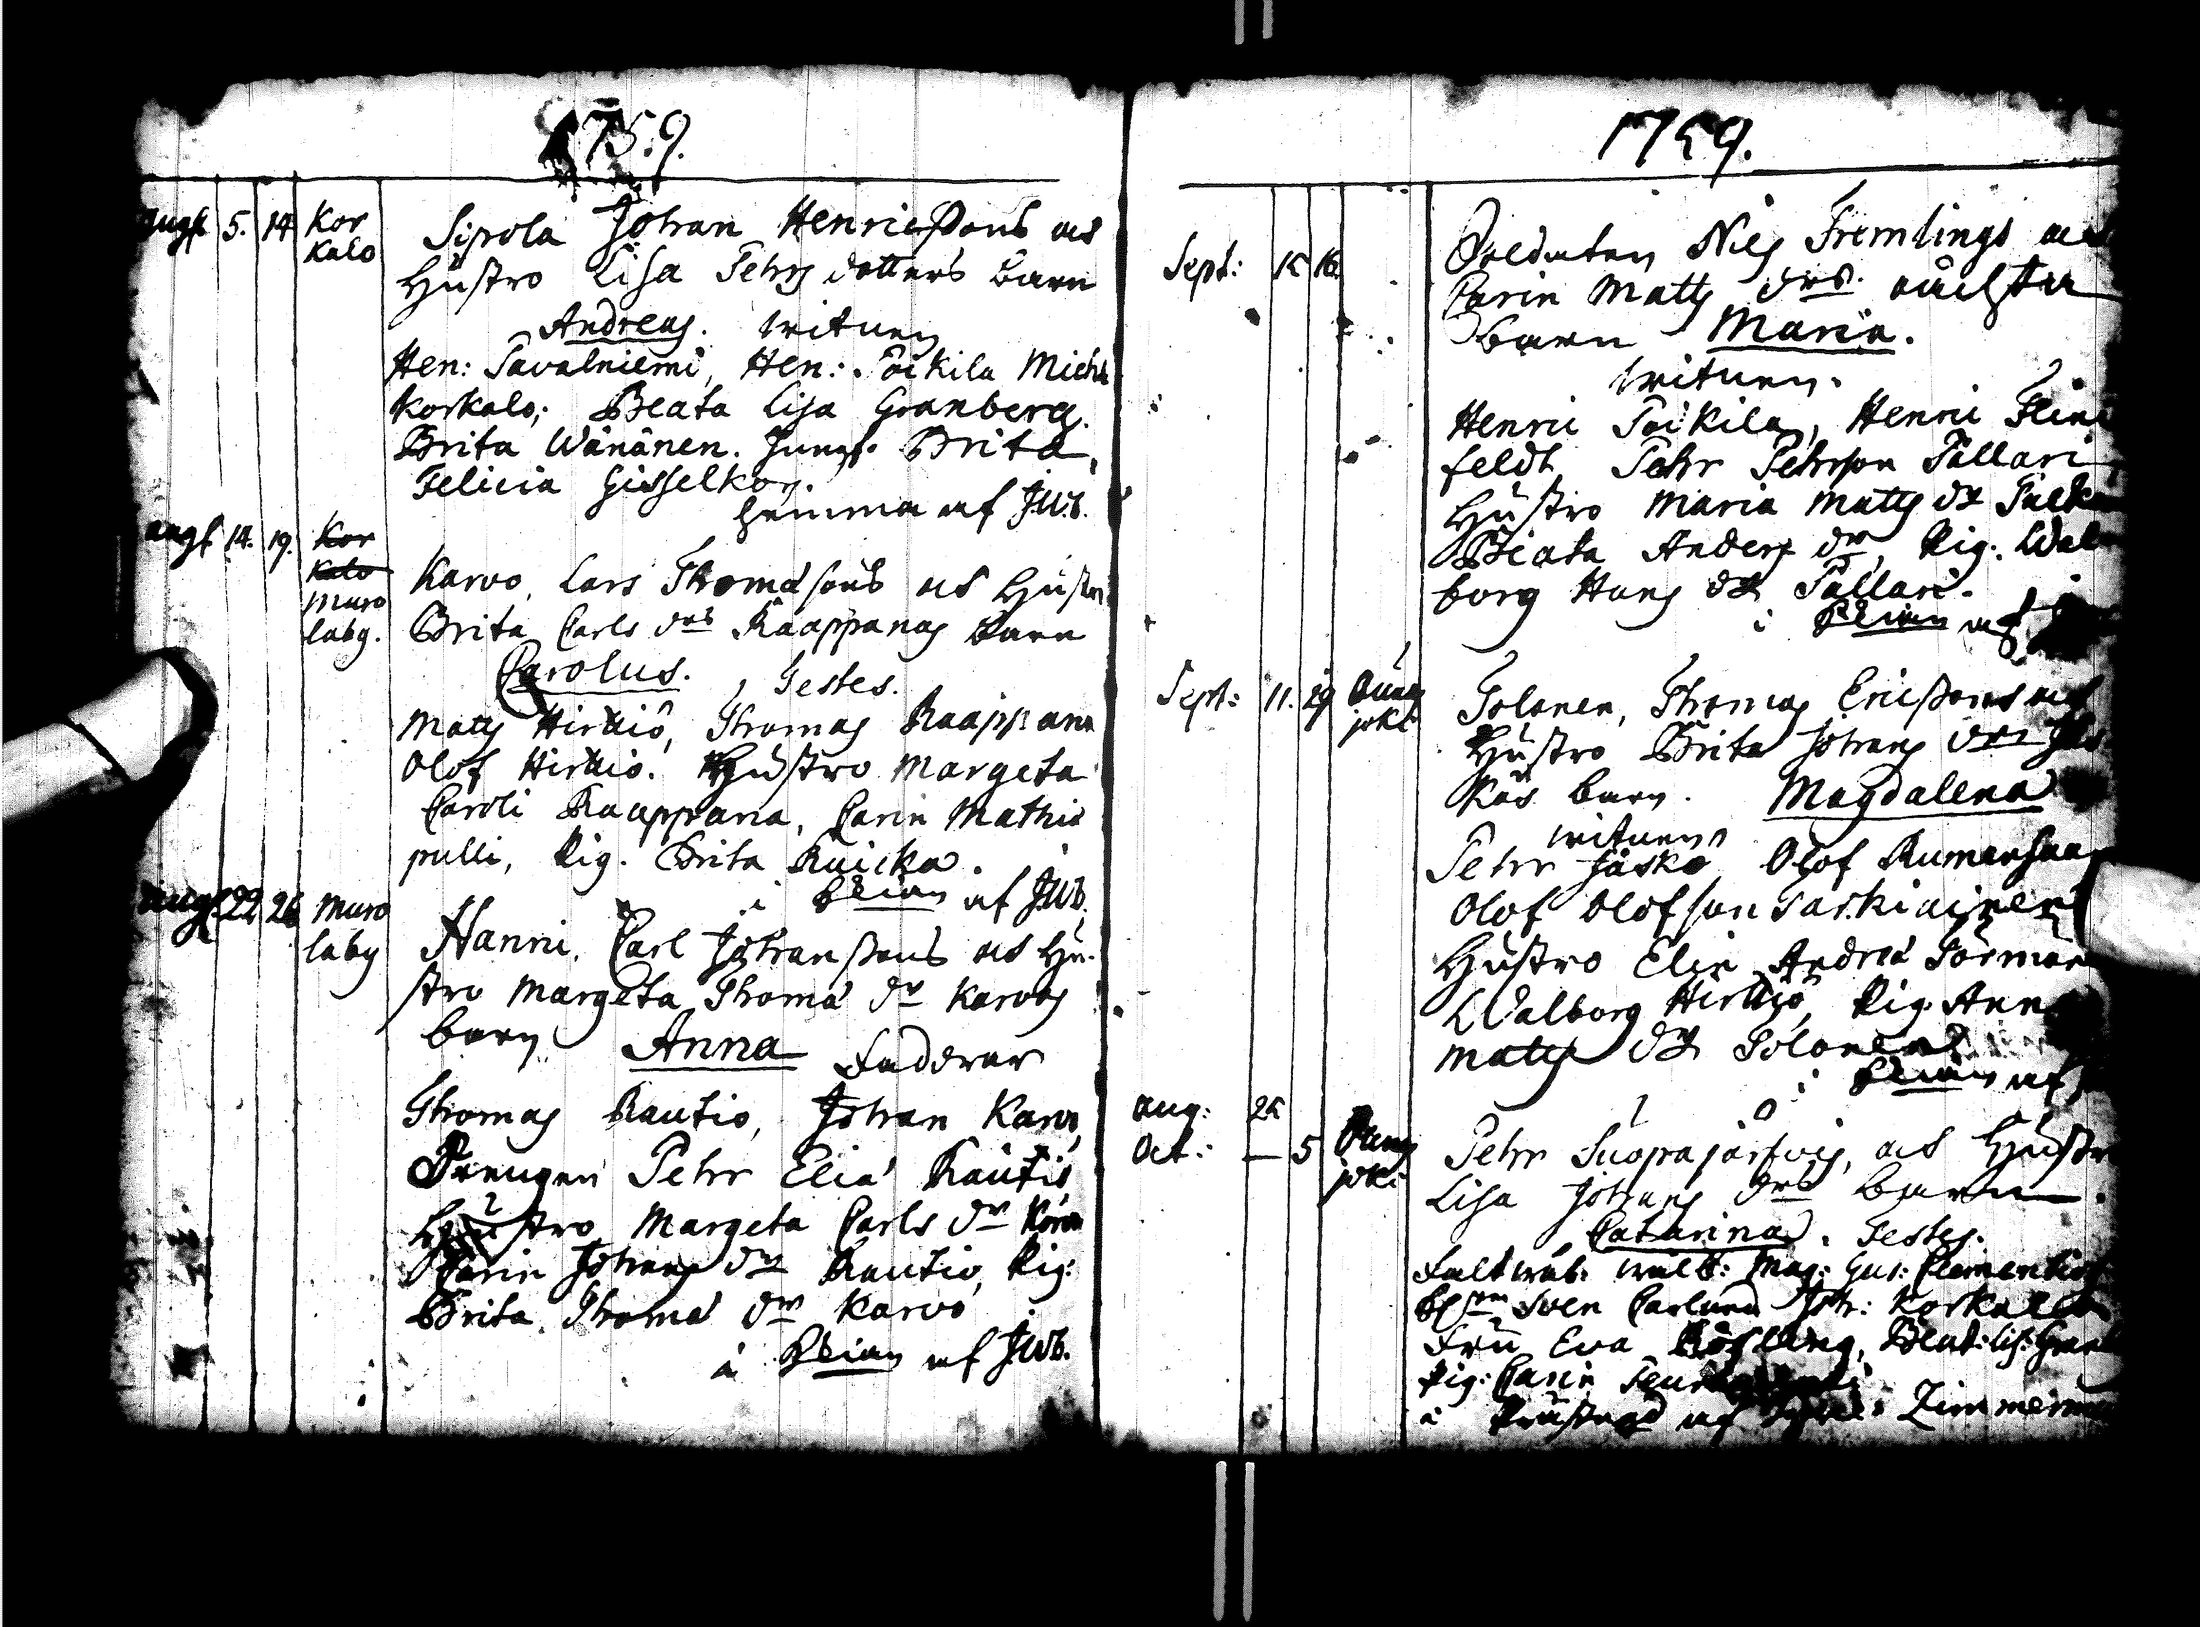 1759.
Augst 5. 14 Kor
kalo
Sipola Johan Henricssons ock
Hustro Lisa Pehrs dotters barn
Andreas. witnen
Hen: Tavalniemi, Hen: Poikila Mich:
Korkalo; Beata Lisa Granberg.
Brita Wänänen. Jungf. Brita
Felicia Gisselkors.
hemma af J.W.b.
Augst 14. 19. Kor
kalo
Muro
laby.
Karvo, Lars Thomæ sons ock Hustro
Brita Carls drs Raappanas barn
Carolus. Testes.
Matts Hirviö, Thomas Raappana
Olof Hirviö. Hustro Margeta
Caroli Raappana, Carin Mathis
pulli, Pig. Brita Kuicka.
i Kÿrian af J.W.b.
Augst 22 26 Muro
laby
Hanni, Carl Johanssons ock Hu-
stro Margeta Thomæ dr Karvos
barn Anna Faddrar
Thomas Rautio, Johan Karvo,
Drengen Pehr Eliæ Rautio
Hustro Margeta Carls dr Karvo
Carin Johans dr Rautio, Pig:
Brita Thomæ dr Karvo
af J.W.b.
1759.
Sept: 15 16.
Soldaten Nils Fremlings ock
Carin Matts drs oächta
barn Maria.
witnen.
Henric Poikila, Henric Flink
feldt, Pehr Pehrson Pallari
Hustro Maria Matts dr
Beata Anders dr, Pig: Wal
borg Hans dr Pallari.
i af
Sept: 11. 29 Ounas
joki
Tolonen, Thomas Ericssons ock
Hustro Brita Johans drs Jäs
käs barn. Magdalena
witnen
Pehr Jäskö, Olof
Olof Olofson Tarkiainen
Hustro Elin Andreæ Törmän
Walborg Hirviö, Pig. Anna
Matts dr Tolonen
i af
Aug: 25
Oct: — 5 Ounas
joki
Pehr Suoprajärfwis, ock Hustro
Lisa Johans drs barn
Catarina. Testes.
Mag: Gus: Clementeoff
Sven Carlund Joh: Korkalo
Fru Eva Rösling, Beat: lis: Granb
Pig: Carin
i Zimmerman